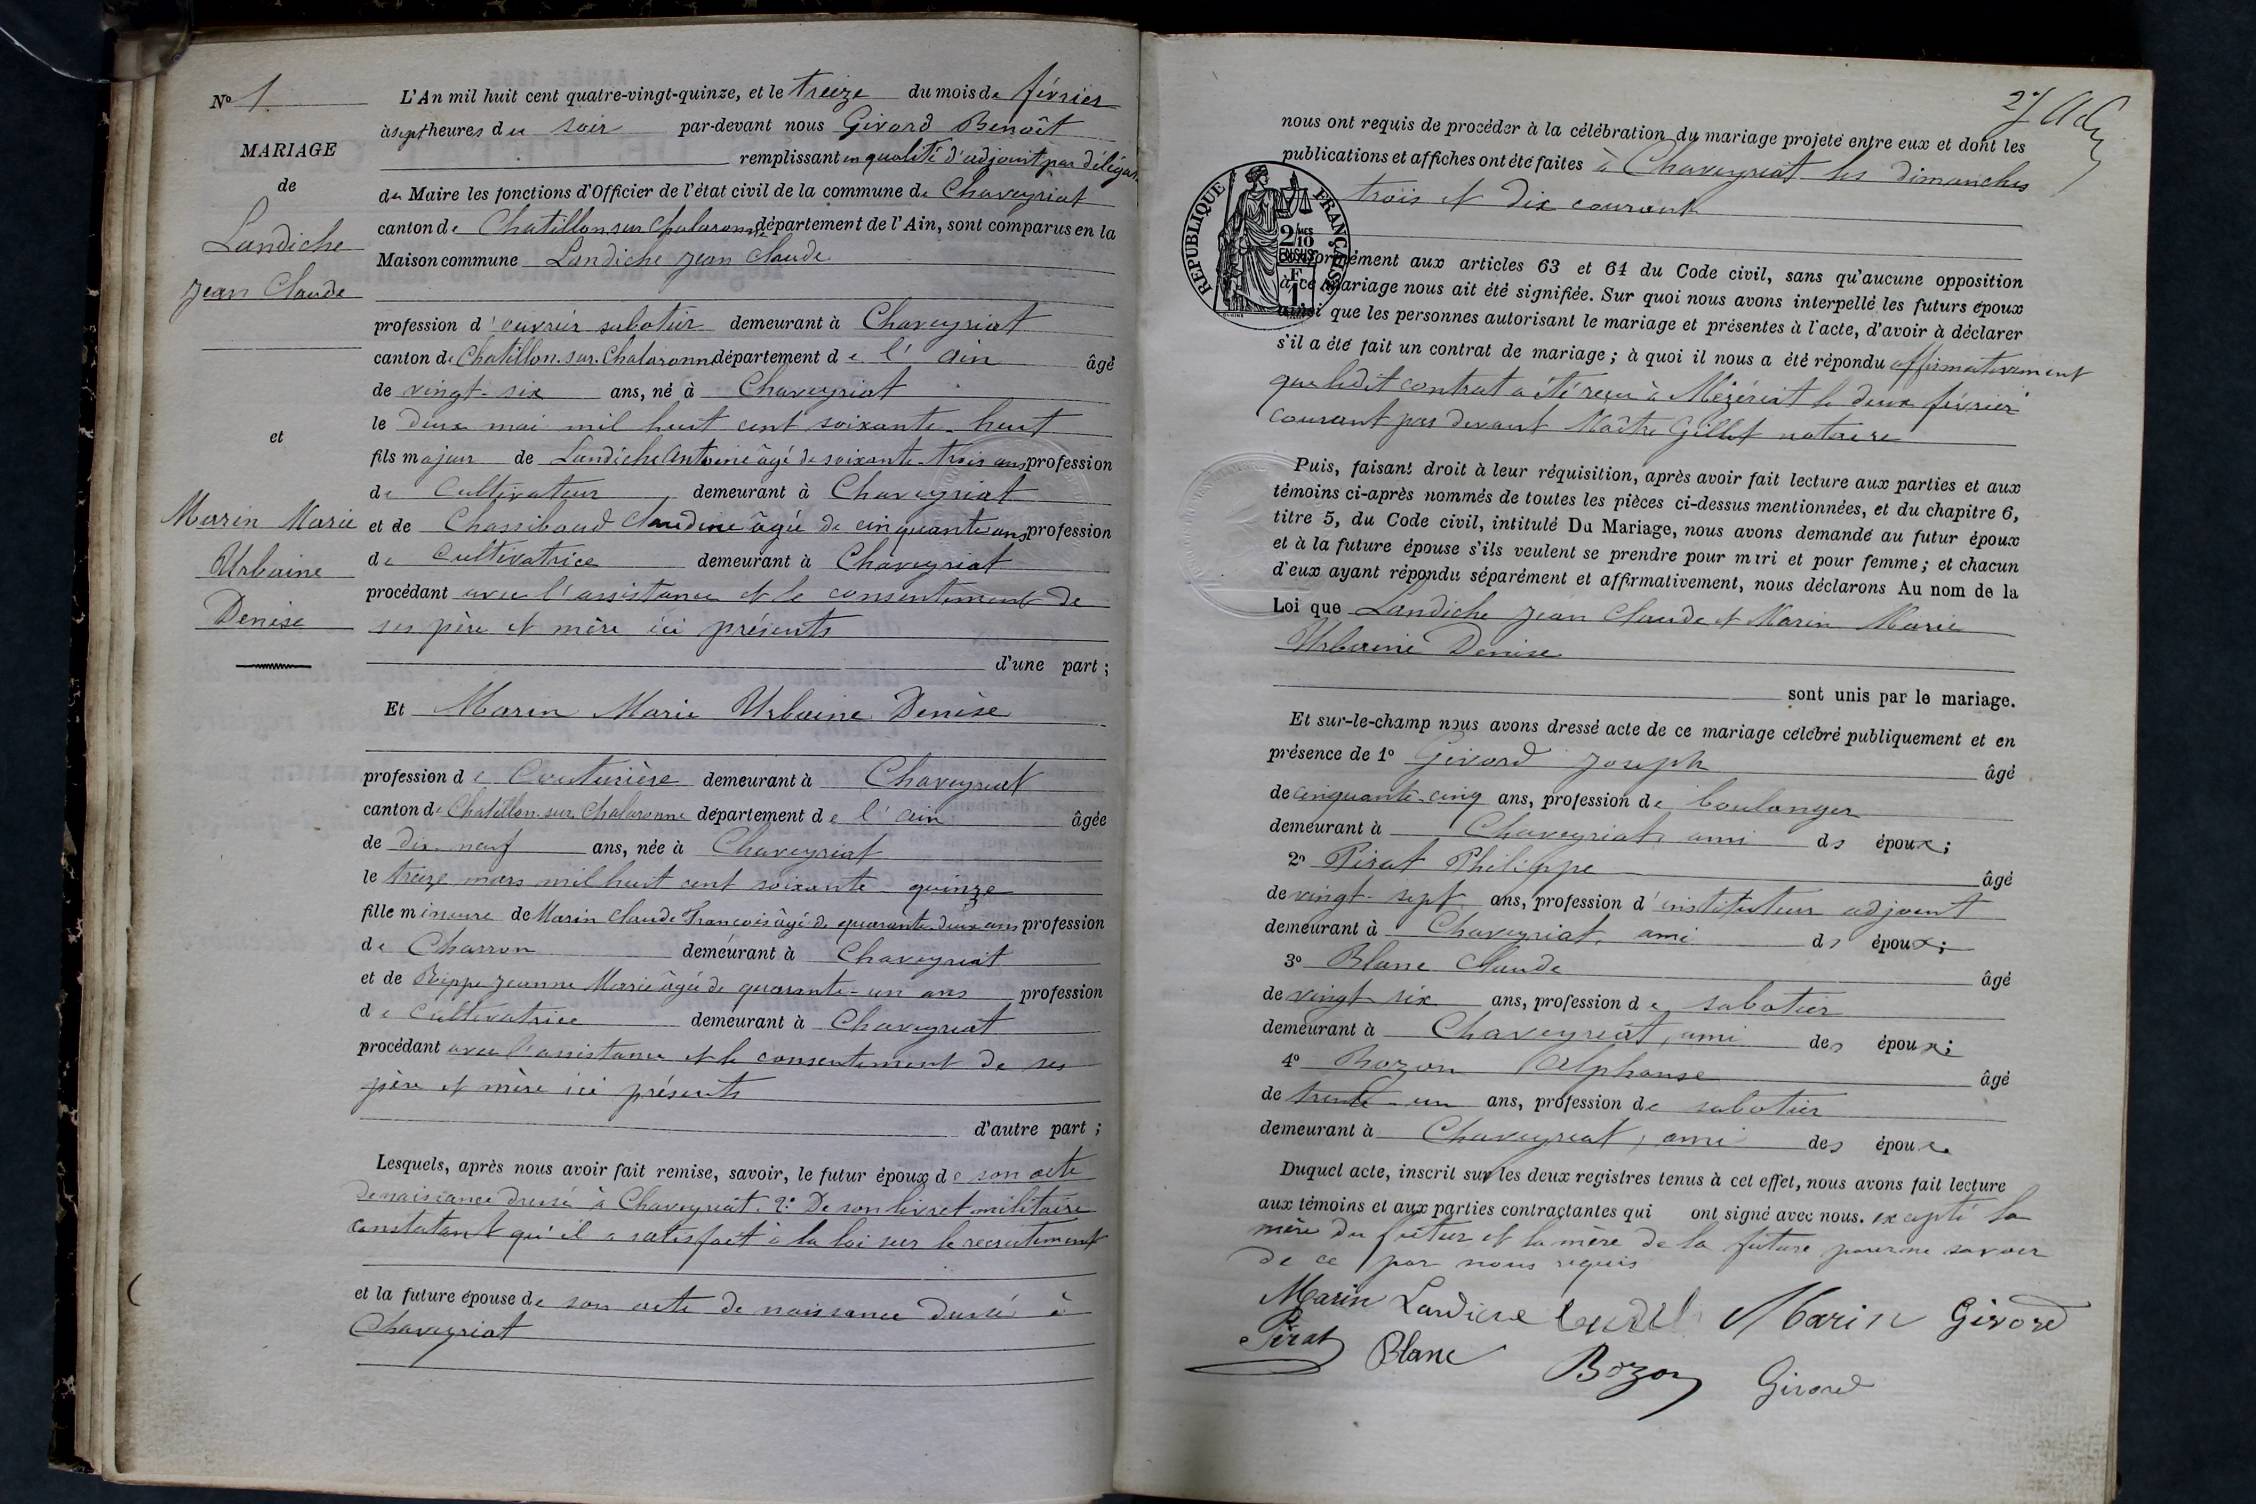 Nº 1
MARIAGE
de
Landiche
Jean Claude
et
Marin Marie
Urbaine
Denise
L'An mil huit cent quatre-vingt-quinze, et le treize du mois de février
à sept heures du soir par-devant nous Girard Benoît
remplissant en qualité d'adjoint par délégat
du Maire les fonctions d'Officier de l'état civil de la commune de Chaveyriat
canton de Chatillon sur Chalaronne département de l'Ain, sont comparus en la
Maison commune Landiche Jean Claude
profession d'ouvrier sabotier demeurant à Chaveyriat
canton de Chatillon-sur-Chalaronne département de l'Ain âgé
de vingt-six ans, né à Chaveyriat
le deux mai mil huit cent soixante-huit
fils majeur de Landiche Antoine âgé de soixante-trois ans profession
de Cultivateur demeurant à Chaveyriat
et de Chassibaud Claudine âgée de cinquante ans profession
de Cultivatrice demeurant à Chaveyriat
procédant avec l'assistance et le consentement de
ses père et mère ici présents
d'une part;
Et Marin Marie Urbaine Denise
profession de Couturière demeurant à Chaveyriat
canton de Chatillon-sur-Chalaronne département de l'Ain âgée
de dix-neuf ans, née à Chaveyriat
le treize mars mil huit cent soixante-quinze
fille mineure de Marin Claude François âgé de quarante-deux ans profession
de Charron demeurant à Chaveyriat
et de Jeanne Marie âgée de quarante-un ans profession
de Cultivatrice demeurant à Chaveyriat
procédant avec l'assistance et le consentement de ses
père et mère ici présents
d'autre part;
Lesquels, après nous avoir fait remise, savoir, le futur époux de son acte
de naissance dressé à Chaveyriat. 2º De son livret militaire
constatant qu'il a satisfait à la loi sur le recrutement
et la future épouse de son acte de naissance dressé à
Chaveyriat
nous ont requis de procéder à la célébration du mariage projeté entre eux et dont les
publications et affiches ont été faites à Chaveyriat les dimanches
trois et dix courant
RÉPUBLIQUE FRANÇAISE
2/10 EN SUS
1 F.
Conformément aux articles 63 et 64 du Code civil, sans qu'aucune opposition
à ce mariage nous ait été signifiée. Sur quoi nous avons interpellé les futurs époux
ainsi que les personnes autorisant le mariage et présentes à l'acte, d'avoir à déclarer
s'il a été fait un contrat de mariage; à quoi il nous a été répondu affirmativement
que ledit contrat a été reçu à Mézériat le deux février
courant par devant Maître Gillet notaire
Puis, faisant droit à leur réquisition, après avoir fait lecture aux parties et aux
témoins ci-après nommés de toutes les pièces ci-dessus mentionnées, et du chapitre 6,
titre 5, du Code civil, intitulé Du Mariage, nous avons demandé au futur époux
et à la future épouse s'ils veulent se prendre pour mari et pour femme; et chacun
d'eux ayant répondu séparément et affirmativement, nous déclarons Au nom de la
Loi que Landiche Jean Claude et Marin Marie
Urbaine Denise
sont unis par le mariage.
Et sur-le-champ nous avons dressé acte de ce mariage célébré publiquement et en
présence de 1º Girard Joseph âgé
de cinquante-cinq ans, profession de boulanger
demeurant à Chaveyriat, ami des époux;
2º Pirat Philippe âgé
de vingt-sept ans, profession d'instituteur adjoint
demeurant à Chaveyriat, ami des époux;
3º Blanc Claude âgé
de vingt-six ans, profession de sabotier
demeurant à Chaveyriat, ami des époux;
4º Bozon Alphonse âgé
de trente-un ans, profession de sabotier
demeurant à Chaveyriat, ami des époux.
Duquel acte, inscrit sur les deux registres tenus à cet effet, nous avons fait lecture
aux témoins et aux parties contractantes qui ont signé avec nous. excepté la
mère du futur et la mère de la future pour ne savoir
de ce par nous requis
Marin Landiche Marin Girard
Pirat Blanc Bozon Girard